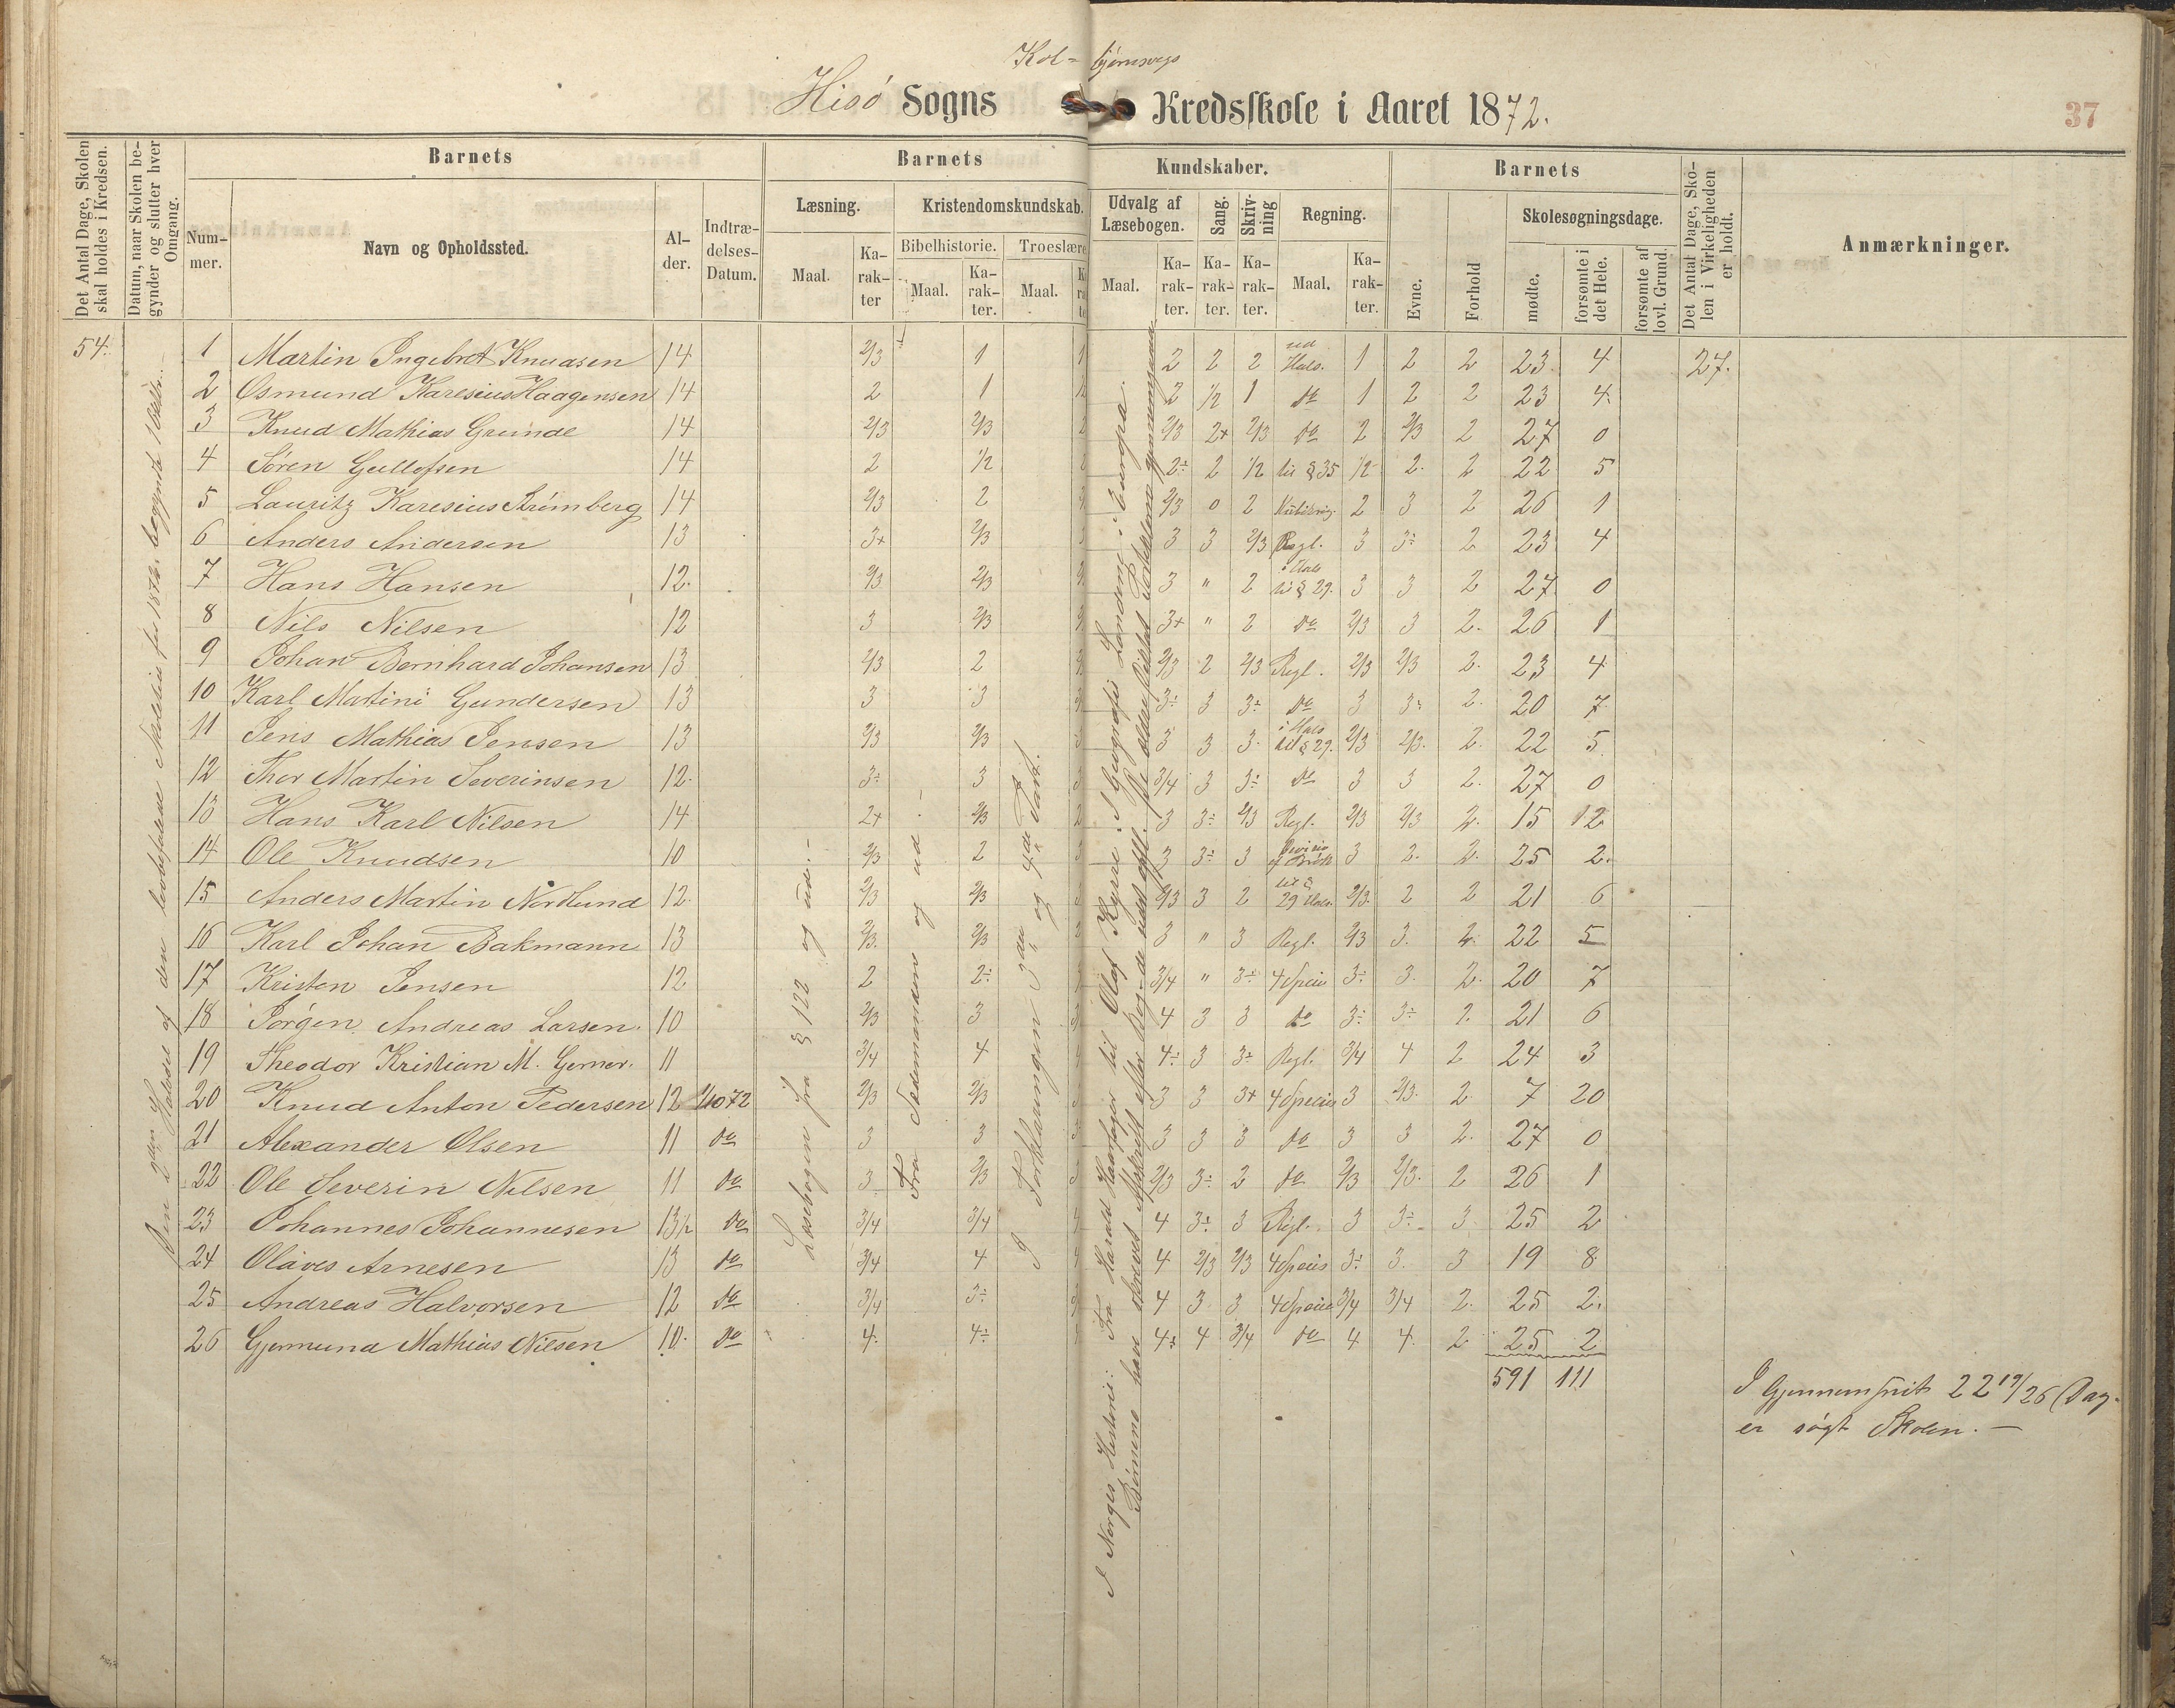 Kol=bjørnsvigs
Hisø Sogns Kredsskole i Aaret 1872.
37
Det Antal Dage, Skolen skal holdes i Kredsen.
Datum, naar Skolen begynder og slutter hver Omgang.
Barnets
Nummer.
Navn og Opholdssted.
Alder.
Indtrædelses-Datum.
Barnets Kundskaber.
Læsning.
Maal.
Karakter
Kristendomskundskab.
Bibelhistorie.
Maal.
Karakter.
Troeslære
Maal.
Udvalg af Læsebogen.
Maal.
Karakter.
Sang.
Karakter.
Skrivning
Karakter.
Regning.
Maal.
Karakter.
Barnets
Evne.
Forhold
Skolesøgningsdage.
mødte.
forsømte i det Hele.
forsømte af lovl. Grund.
Det Antal Dage, Skolen i Virkeligheden er holdt.
Anmærkninger.
54.
Læsebogen fra § 122 og ud. –
Fra og ud. –
I Forklaringen 3die og 4de Part.
I Norges Historie: Fra Harald Haarfager til Olaf Kyrre. I Geografi: Landene i Europa.
1 Martin Ingebret Knudsen 14 2/3 1 2 2 2 ud Hals. 1 2 2 23 4 27.
2 Osmund Karesius Haagensen 14 2 1 2 1/2 1 do 1 2 2 23 4.
3 Knud Mathias Grunde 14 2/3 2/3 2/3 2+ 2/3 do 2 2/3 2 27 0
4 Søren Gullofsen 14 2 1/2 2÷ 2 1/2 til § 35 1/2 2. 2 22 5
5 Lauritz Karesius Strømberg 14 2/3 2 2/3 0 2 2 3 2 26 1
6 Anders Andersen 13 3+ 2/3 3 3 2/3 Regl. 3 3÷ 2 23 4
7 Hans Hansen 12. 2/3 2/3 3 " 2 i Hals til § 29. 3 3 2 27 0
8 Nils Nilsen 12 3 2/3 3+ " 2 do 2/3 3 2. 26 1
9 Johan Bernhard Johansen 13 2/3 2 2/3 2 2/3 Regl. 2/3 2/3 2. 23 4
10 Karl Martini Gundersen 13 3 3 3÷ 3 3÷ do 3 3÷ 2. 20 7
11 Jens Mathias Jensen 13 2/3 2/3 3 3 3. i Hals til § 29. 2/3 2/3. 2. 22 5
12 Thor Martin Severinsen 12. 3÷ 3 3/4 3 3÷ do 3 3 2. 27 0
13 Hans Karl Nilsen 14 2+ 2/3 3 3÷ 2/3 Regl. 2/3 2/3 2. 15 12
14 Ole Knudsen 10 2/3 2 3 3÷ 3 3 2. 2. 25 2.
15 Anders Martin Nordlund 12. 2/3 2/3 2/3 3 2 til § 29 Hals. 2/3. 2 2 21 6
16 Karl Johan Bakmann 13 2/3. 2/3 3 " 3 Regl. 2/3 3. 2. 22 5
17 Kristen Jensen 12. 2 2÷ 3/4 " 3÷ 4 Specis 3÷ 3. 2. 20 7
18 Jørgen Andreas Larsen. 10 2/3 3 4 3 3 do 3÷ 3÷ 2. 21 6
19 Theodor Kristian M. Gerner. 11 3/4 4 4÷ 3 3÷ Regl. 3/4 4 2 24 3
20 Knud Anton Pedersen 12 1/10 72 2/3 2/3 3 3 3+ 4 Specis 3 2/3. 2. 7 20
21 Alexander Olsen 11 do 3 3 3 3 3 do 3 3 2. 27 0
22 Ole Severin Nilsen 11 do 3 2/3 2/3 3÷ 2 do 2/3 2/3. 2 26 1
23 Johannes Johannesen 13½ do 3/4 3/4 4 3÷ 3 Regl. 3 3÷ 3 25 2
24 Olaves Arnesen 13 do 3/4 4 4 2/3 2/3 4 Specis 3÷ 3. 3 19 8
25 Andreas Halvorsen 12 do 3/4 3÷ 4 3 3 4 Specis 3/4 3/4 2. 25 2.
26 Gjermund Mathias Nilsen 10. do 4. 4÷ 4÷ 4 3/4 do 4. 4. 2 25 2
591 111
I Gjennemsnit 22 19/26 Dag
er søgt Skolen. –